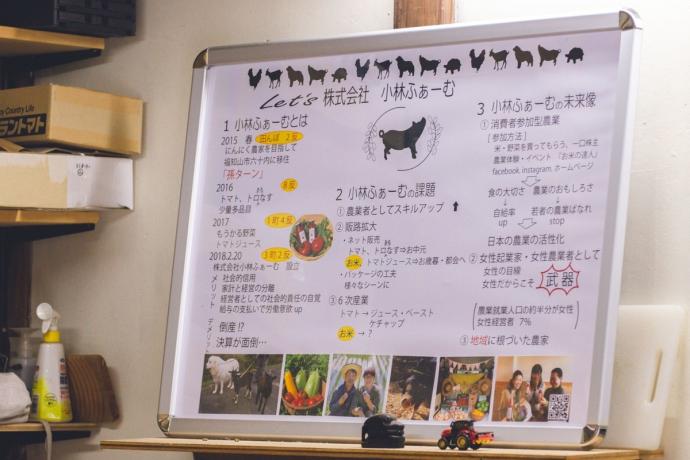 Let's 株式会社 小林ふぁーむ
1 小林ふぁーむとは
2015 春 田んぼ 2反
にんにく農家を目指して
福知山市六十内に移住
「孫ターン」
2016 8反
トマト、トロなす
少量多品目
2017 1町4反
もうかる野菜
トマトジュース
2018.2.20 3町2反
株式会社小林ふぁーむ 設立
メリット
社会的信用
家計と経営の分離
経営者としての社会的責任の自覚
給与の支払いで労働意欲 up
デメリット
倒産!?
決算が面倒…
2 小林ふぁーむの課題
①農業者としてスキルアップ ⬆
②販路拡大
・ネット販売
トマト、トロなす⇒お中元
お米、トマトジュース⇒お歳暮・都会へ
・パッケージの工夫
様々なシーンに
③6次産業
トマト → ジュース・ペースト
ケチャップ
お米 → ?
3 小林ふぁーむの未来像
①消費者参加型農業
[参加方法]
米・野菜を買ってもらう、一口株主
農業体験・イベント 『お米の達人』
facebook, instagram, ホームページ
食の大切さ 農業のおもしろさ
自給率 若者の農業ばなれ
up stop
日本の農業の活性化
②女性起業家・女性農業者として
女性の目線
女性だからこそ 武器
農業就業人口の約半分が女性
女性経営者 7%
③地域に根づいた農家
Country Life
ラントマト